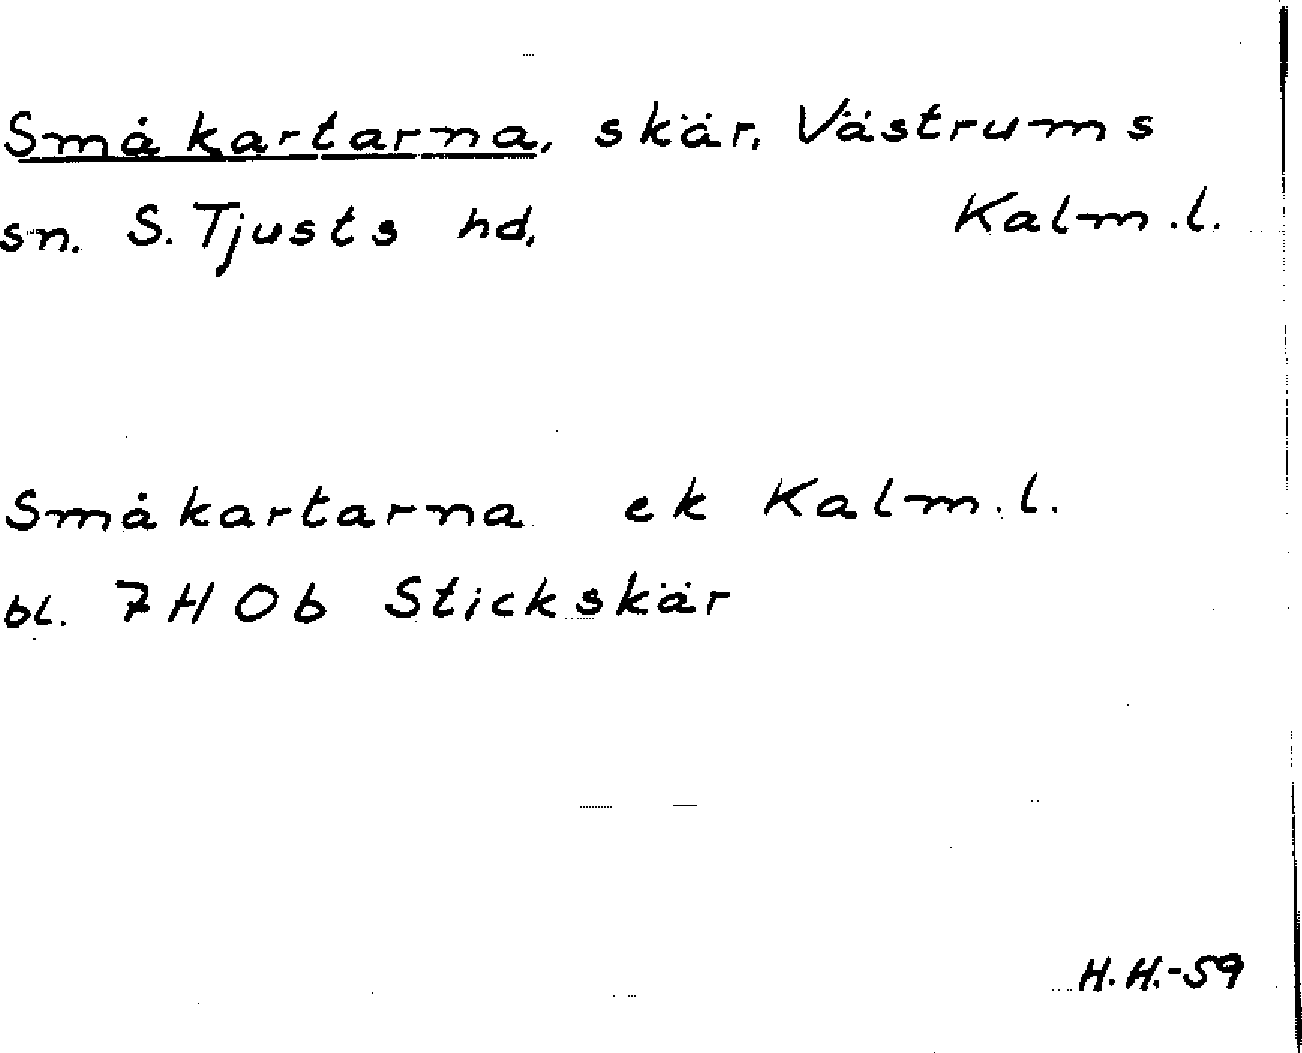 Småkartarna, skär, Västrums
sn. S. Tjusts hd, Kalm.l.
Småkartarna ek Kalm.l.
bl. 7H0b Stickskär
H.H.-59